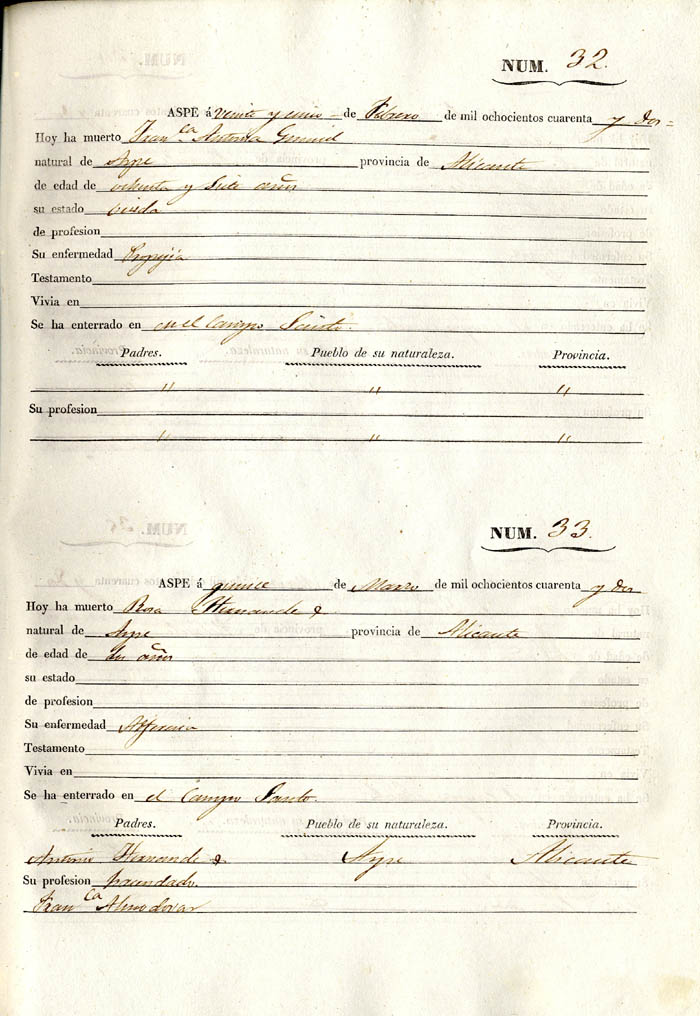 NUM. 32.
ASPE á veinte y cinco de Febrero de mil ochocientos cuarenta y dos=
Hoy ha muerto Fran.ca Antonia
natural de Aspe provincia de Alicante
de edad de ochenta y siete años
su estado viuda
de profesion
Su enfermedad
Testamento
Vivia en
Se ha enterrado en en el Campo Santo.
Padres. Pueblo de su naturaleza. Provincia.
" " "
Su profesion
" " "
NUM. 33.
ASPE á quince de Marzo de mil ochocientos cuarenta y dos
Hoy ha muerto Rosa Hernandez
natural de Aspe provincia de Alicante
de edad de dos años
su estado
de profesion
Su enfermedad
Testamento
Vivia en
Se ha enterrado en el Campo Santo.
Padres. Pueblo de su naturaleza. Provincia.
Antonio Hernandez Aspe Alicante
Su profesion hacendado.
Fran.ca Almodovar